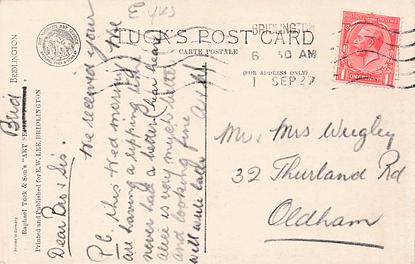 Eyks
TUCK'S POST CARD
CARTE POSTALE
(FOR ADDRESS ONLY)
BRIDLINGTON
6. 30 AM
1 SEP 27
BRIDLINGTON
Raphael Tuck & Son's "ART
Printed and Published for E. W. LEE, BRIDLINGTON
Brid
Dear Bro & Sis.
We received your
P.C. this Wed morning We
are having a ripping time
never had a better
Alice is very much better
and looking fine
will write later
Mr & Mrs Wrigley
32 Thurland Rd
Oldham